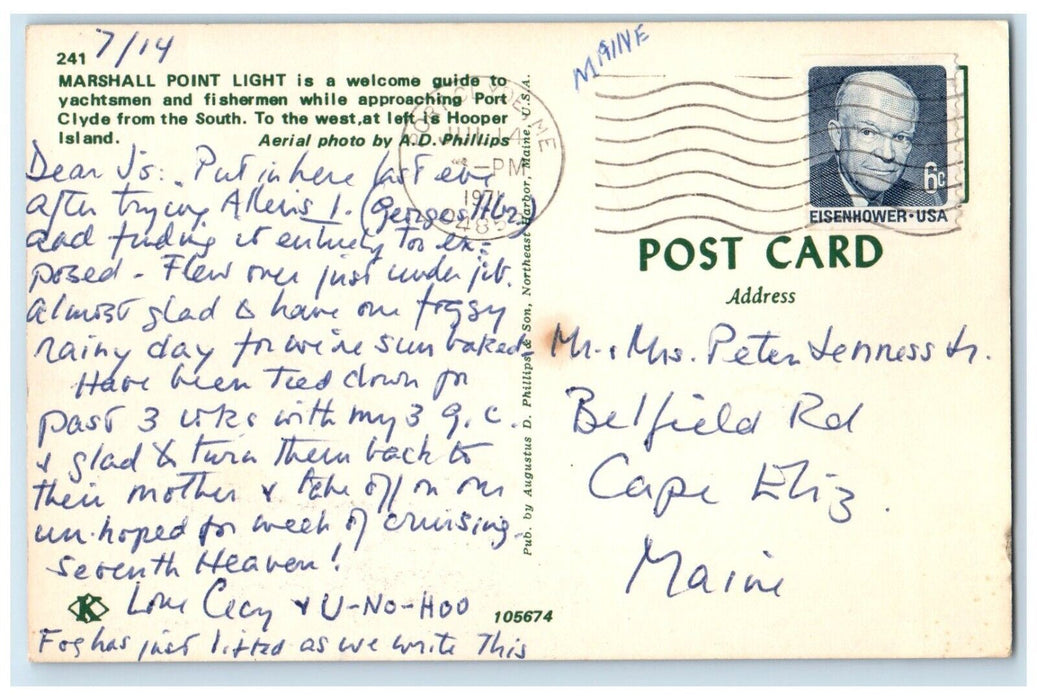 241 7/14
MARSHALL POINT LIGHT is a welcome guide to
yachtsmen and fishermen while approaching Port
Clyde from the South. To the west, at left is Hooper
Island. Aerial photo by A.D. Phillips
Dear J's: Put in here last eve
after trying Allens I. (Georges Hbr)
and finding it entirely too ex-
posed - Flew over just under jib.
Almost glad to have one foggy
rainy day for we're sun baked
Have been tied down for
past 3 wks with my 3 g.c.
& glad to turn them back to
their mother & take off on our
un-hoped for week of cruising.
Seventh Heaven!
K Love Cecy & U-No-Hoo
105674
Fog has just lifted as we write this
Pub. by Augustus D. Phillips & Son, Northeast Harbor, Maine, U.S.A.
PORT CLYDE, ME
JUL 14
PM
197
MAINE
6c
EISENHOWER·USA
POST CARD
Address
Mr. & Mrs. Peter Jenness Jr.
Belfield Rd
Cape Eliz.
Maine